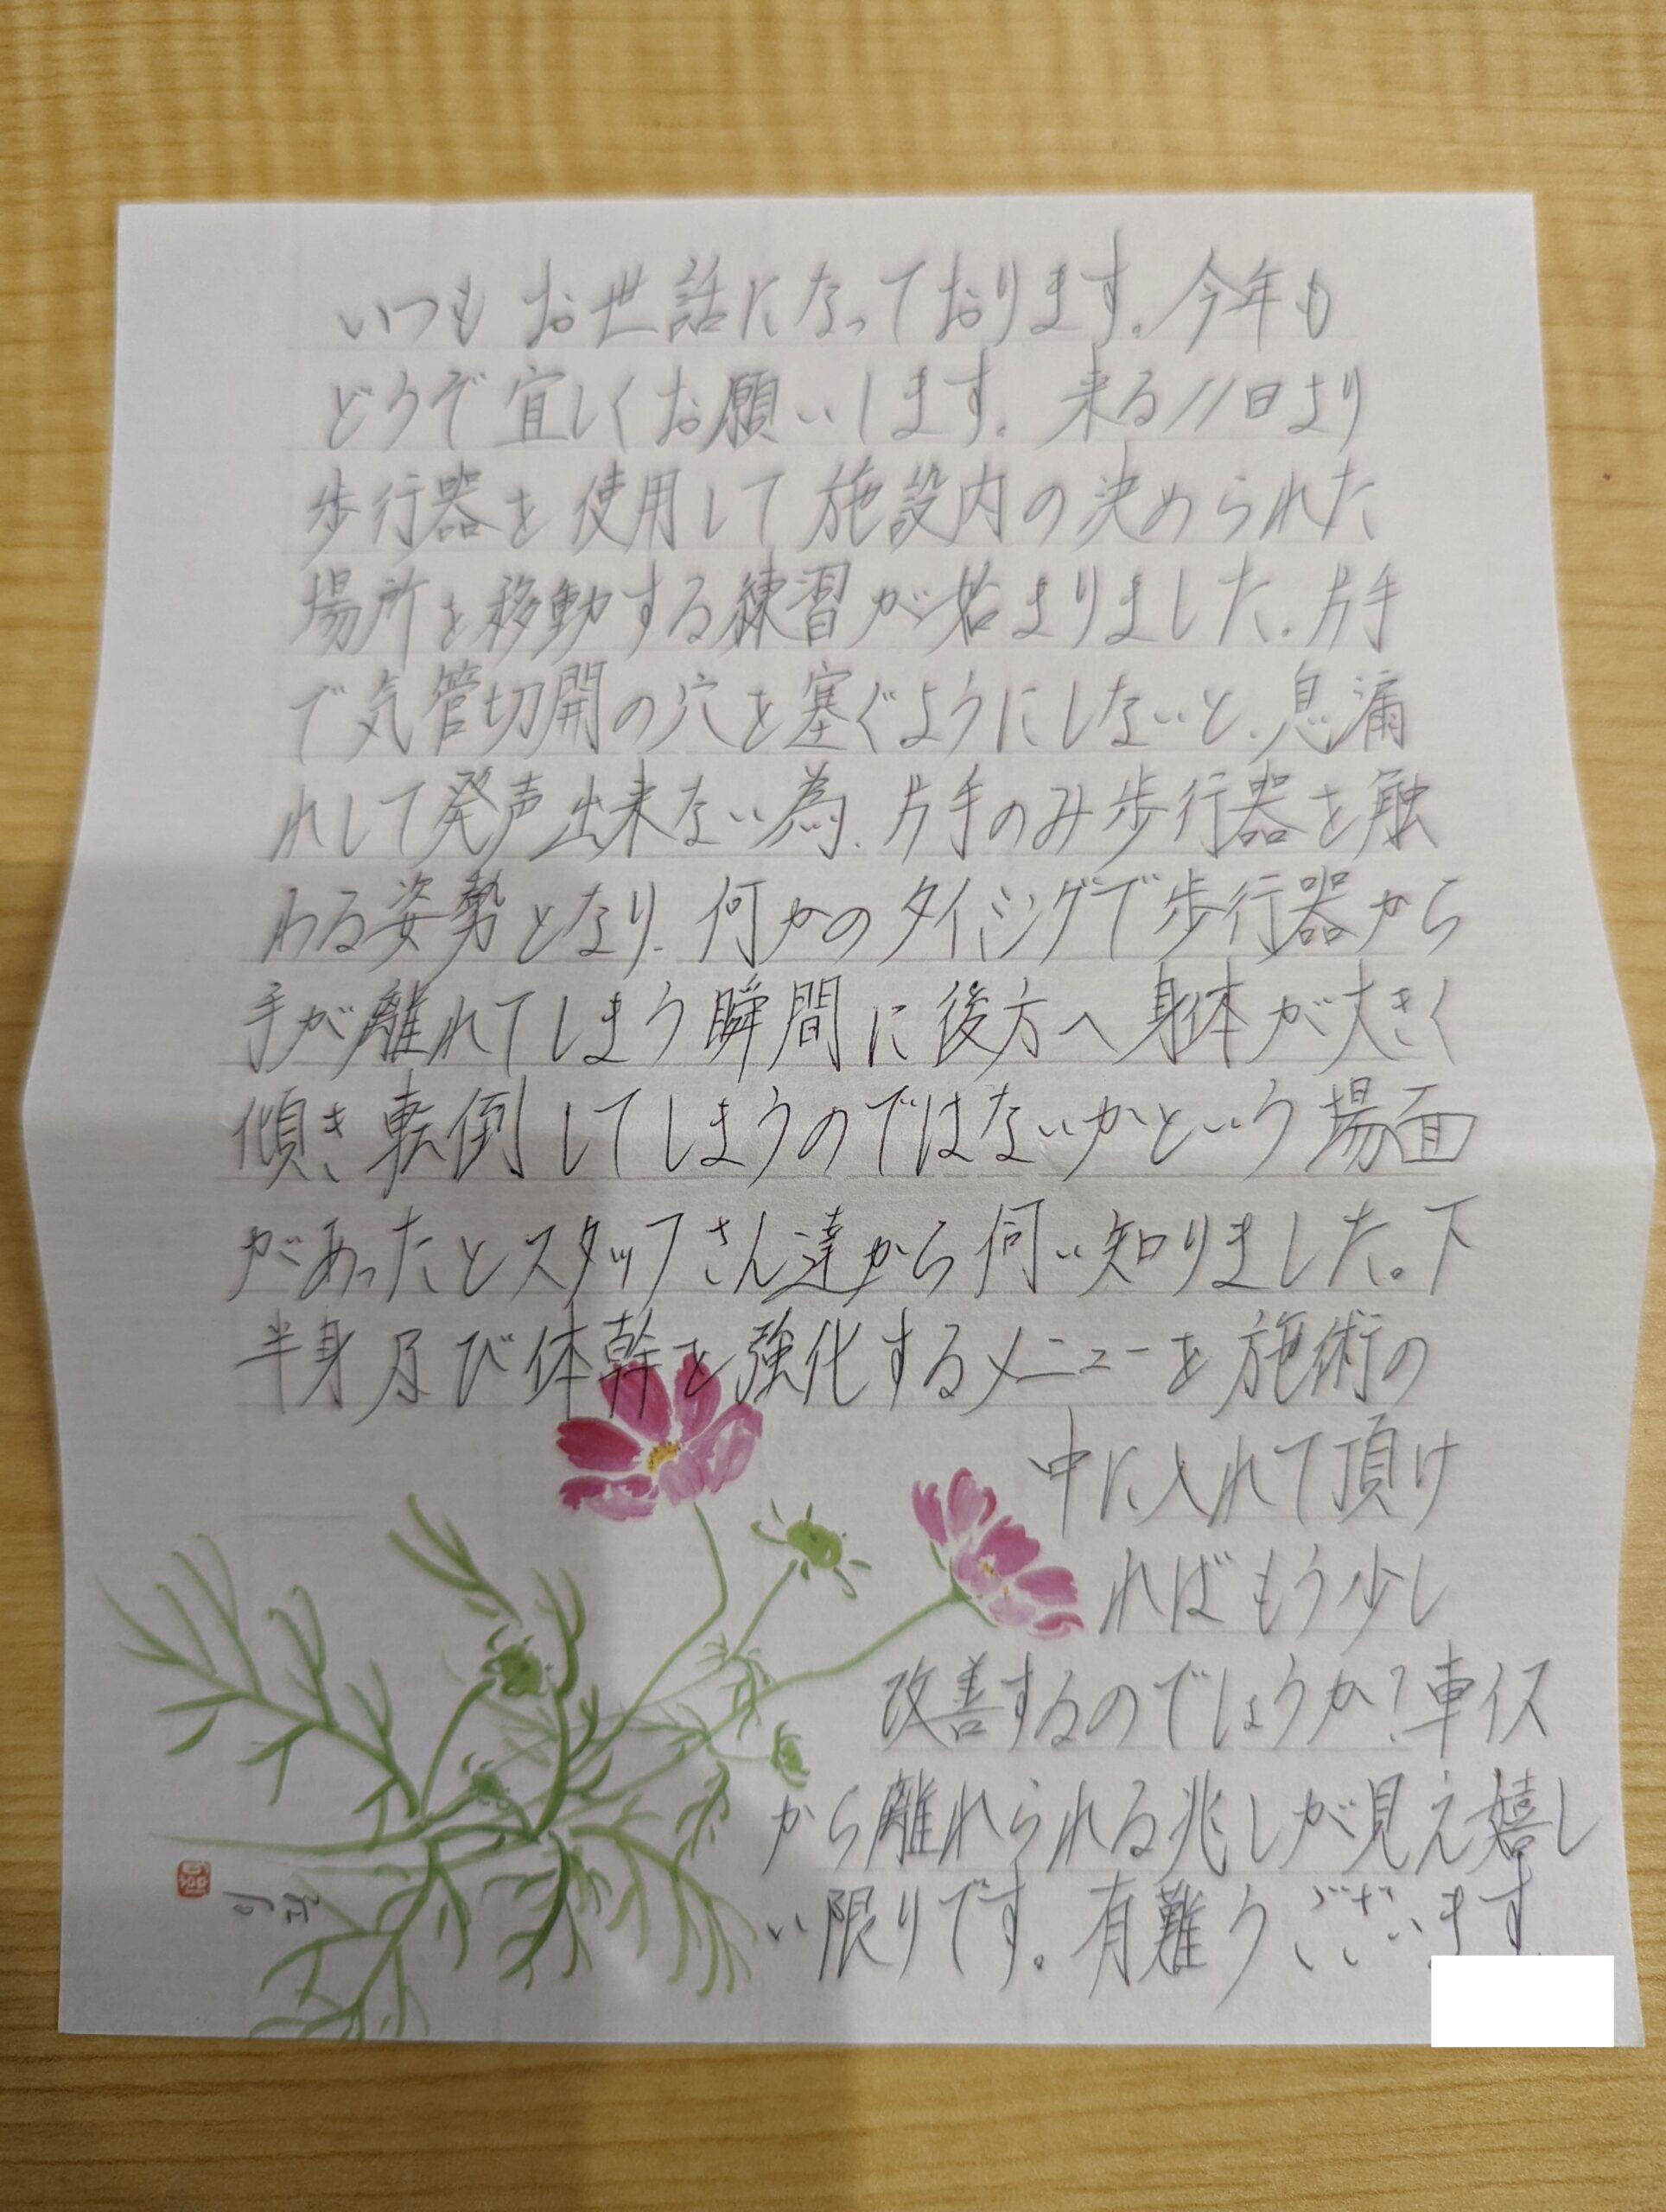 いつもお世話になっております。今年も
どうぞ宜しくお願いします。来る11日より
歩行器を使用して施設内の決められた
場所を移動する練習が始まりました。片手
で気管切開の穴を塞ぐようにしないと、息漏
れして発声出来ない為、片手のみ歩行器を触
わる姿勢となり、何かのタイミングで歩行器から
手が離れてしまう瞬間に後方へ身体が大きく
傾き転倒してしまうのではないかという場面
があったとスタッフさん達から伺い知りました。下
半身及び体幹を強化するメニューを施術の
中に入れて頂け
ればもう少し
改善するのでしょうか?車イス
から離れられる兆しが見え嬉し
い限りです。有難うございます